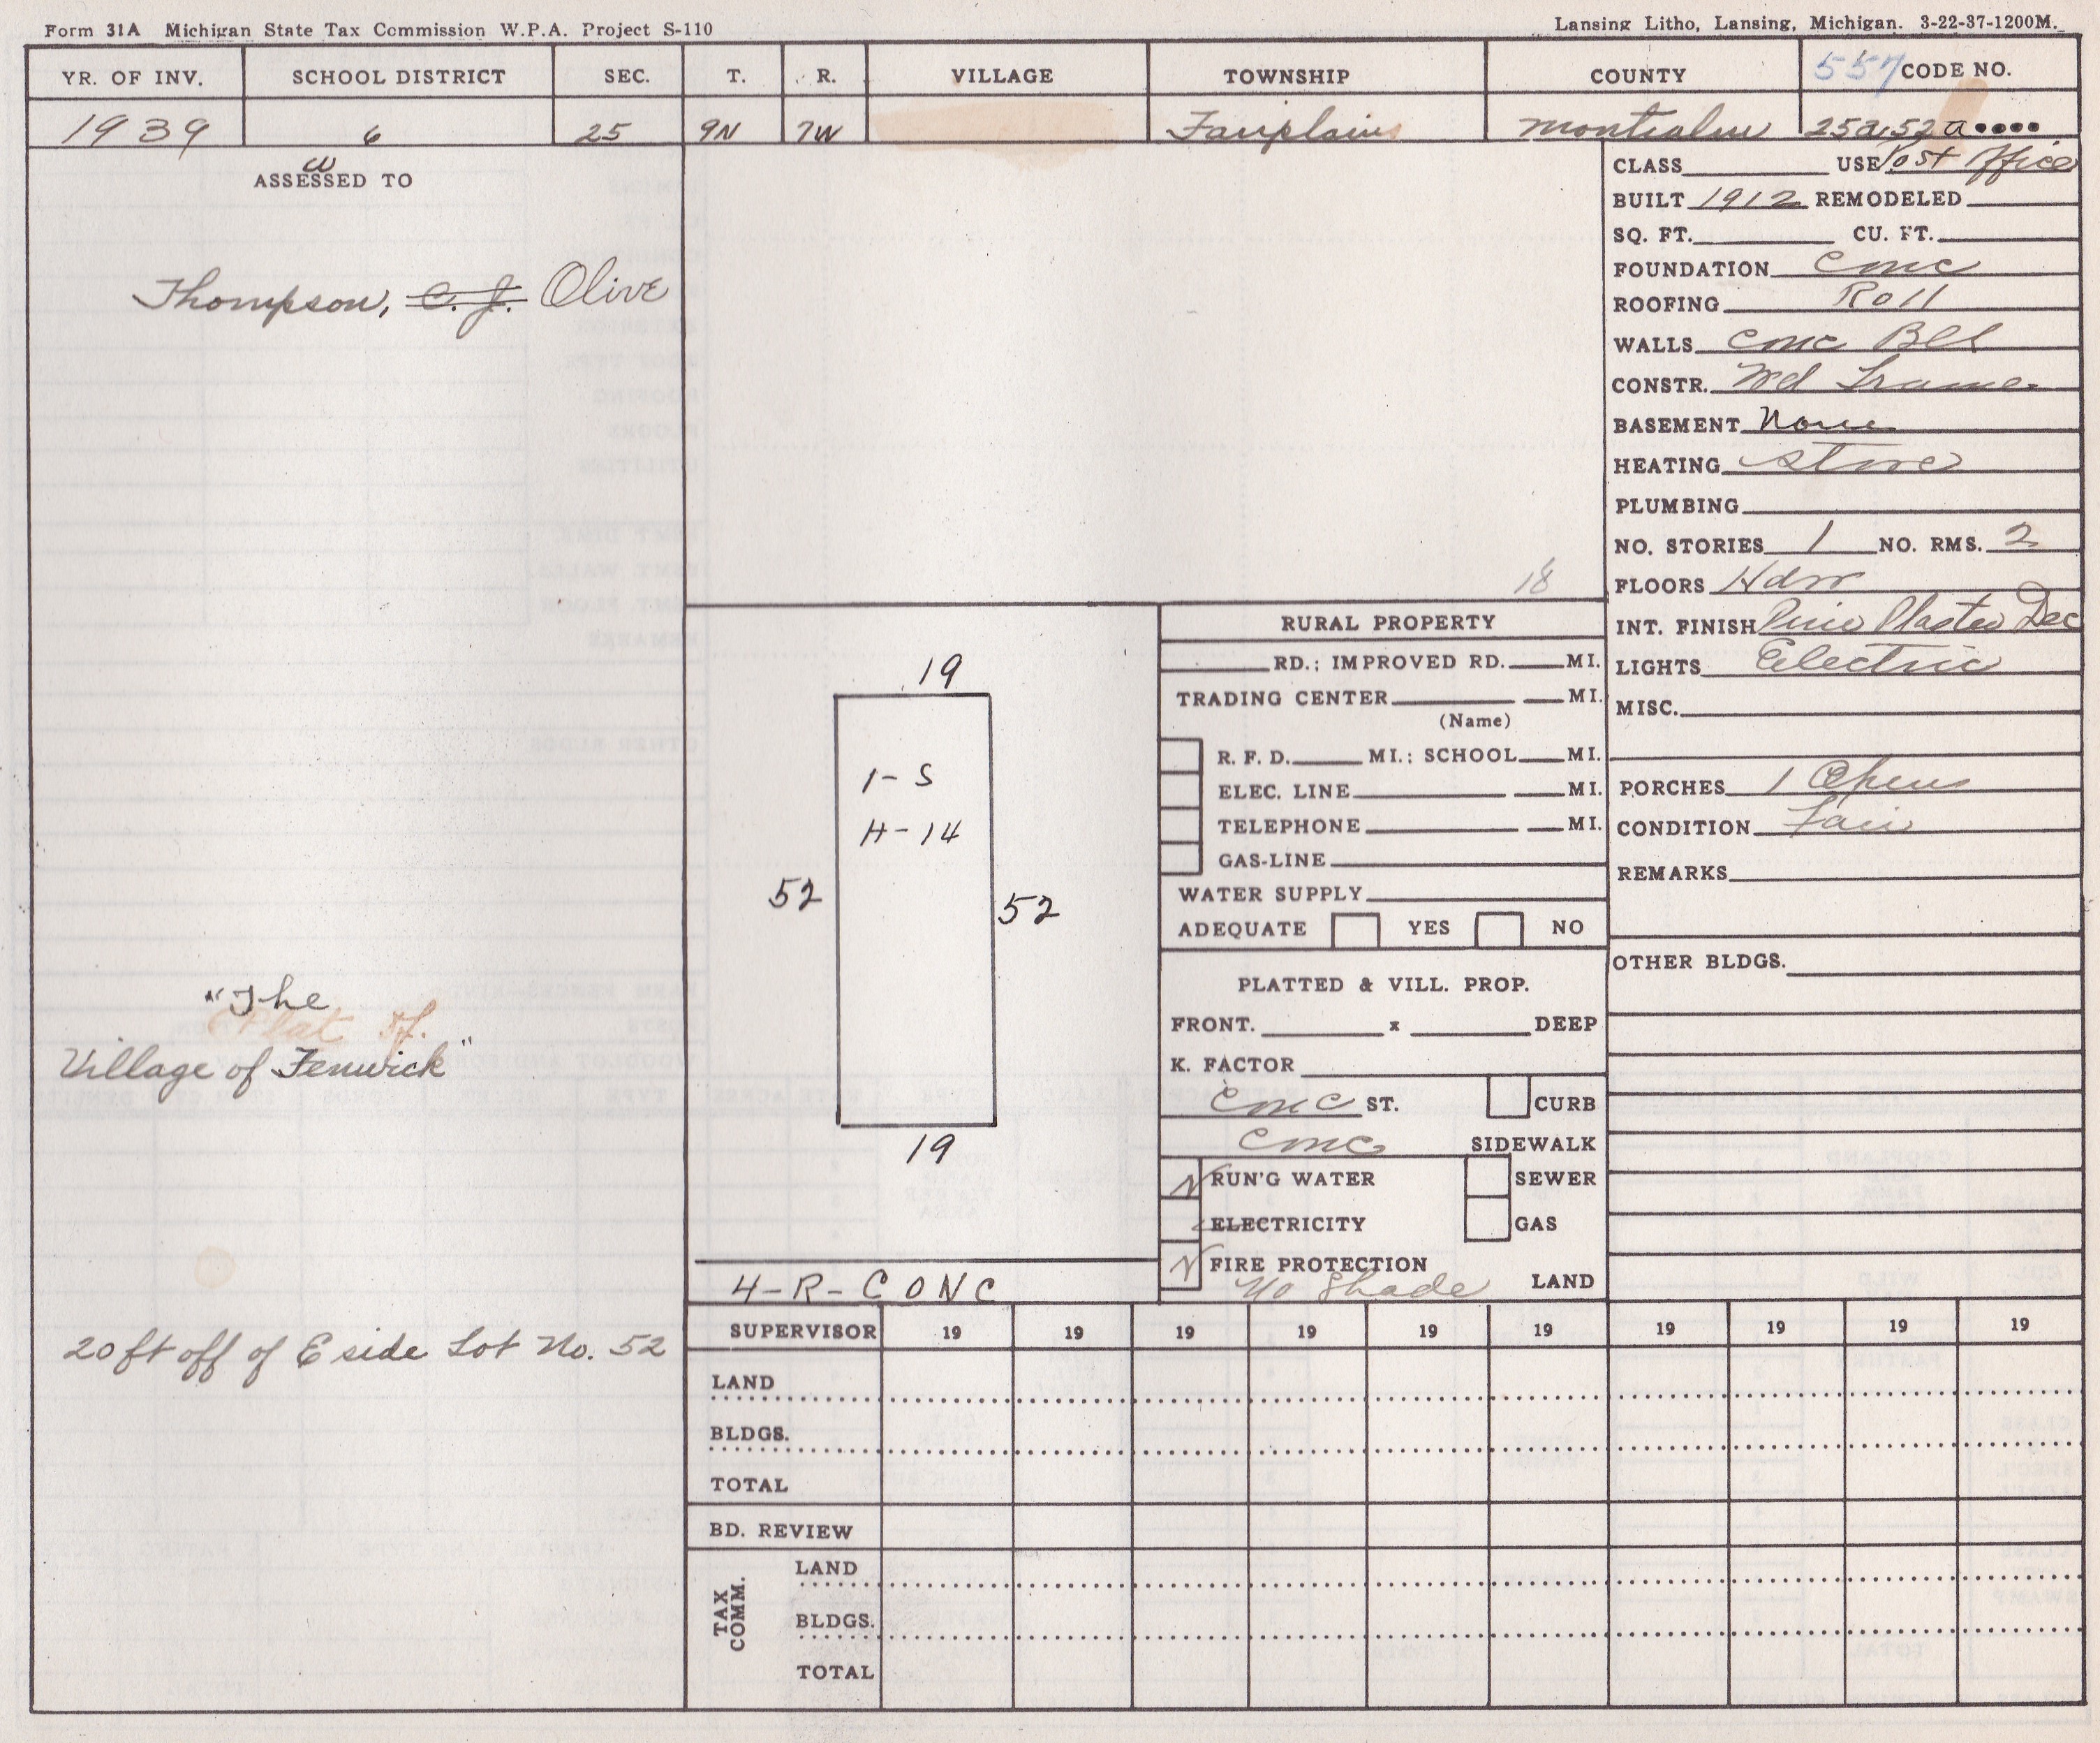 Form 31A Michigan State Tax Commission W.P.A. Project S-110
Lansing Litho, Lansing, Michigan. 3-22-37-1200M.
YR. OF INV. SCHOOL DISTRICT SEC. T. R. VILLAGE TOWNSHIP COUNTY 557 CODE NO.
1939 6 25 9N 7W Fairplains Montcalm 25a,52a
ASSESSED TO
W
Thompson, C. J. Olive
"The
Plat of.
Village of Fenwick"
20 ft off of E side Lot No. 52
18
19
1-S
H-14
52
52
19
4-R-CONC
RURAL PROPERTY
RD.; IMPROVED RD. MI.
TRADING CENTER MI.
(Name)
R. F. D. MI.; SCHOOL MI.
ELEC. LINE MI.
TELEPHONE MI.
GAS-LINE
WATER SUPPLY
ADEQUATE YES NO
PLATTED & VILL. PROP.
FRONT. x DEEP
K. FACTOR
Conc ST. CURB
Conc SIDEWALK
N RUN'G WATER SEWER
ELECTRICITY GAS
N FIRE PROTECTION
No Shade LAND
CLASS USE Post Office
BUILT 1912 REMODELED
SQ. FT. CU. FT.
FOUNDATION Conc
ROOFING Roll
WALLS Conc Bll
CONSTR. Wd Frame
BASEMENT None
HEATING Stove
PLUMBING
NO. STORIES 1 NO. RMS. 2
FLOORS Hdw
INT. FINISH Pine Plaster Dec
LIGHTS Electric
MISC.
PORCHES 1 Open
CONDITION Fair
REMARKS
OTHER BLDGS.
SUPERVISOR 19 19 19 19 19 19 19 19 19
LAND
BLDGS.
TOTAL
BD. REVIEW
TAX COMM.
LAND
BLDGS.
TOTAL